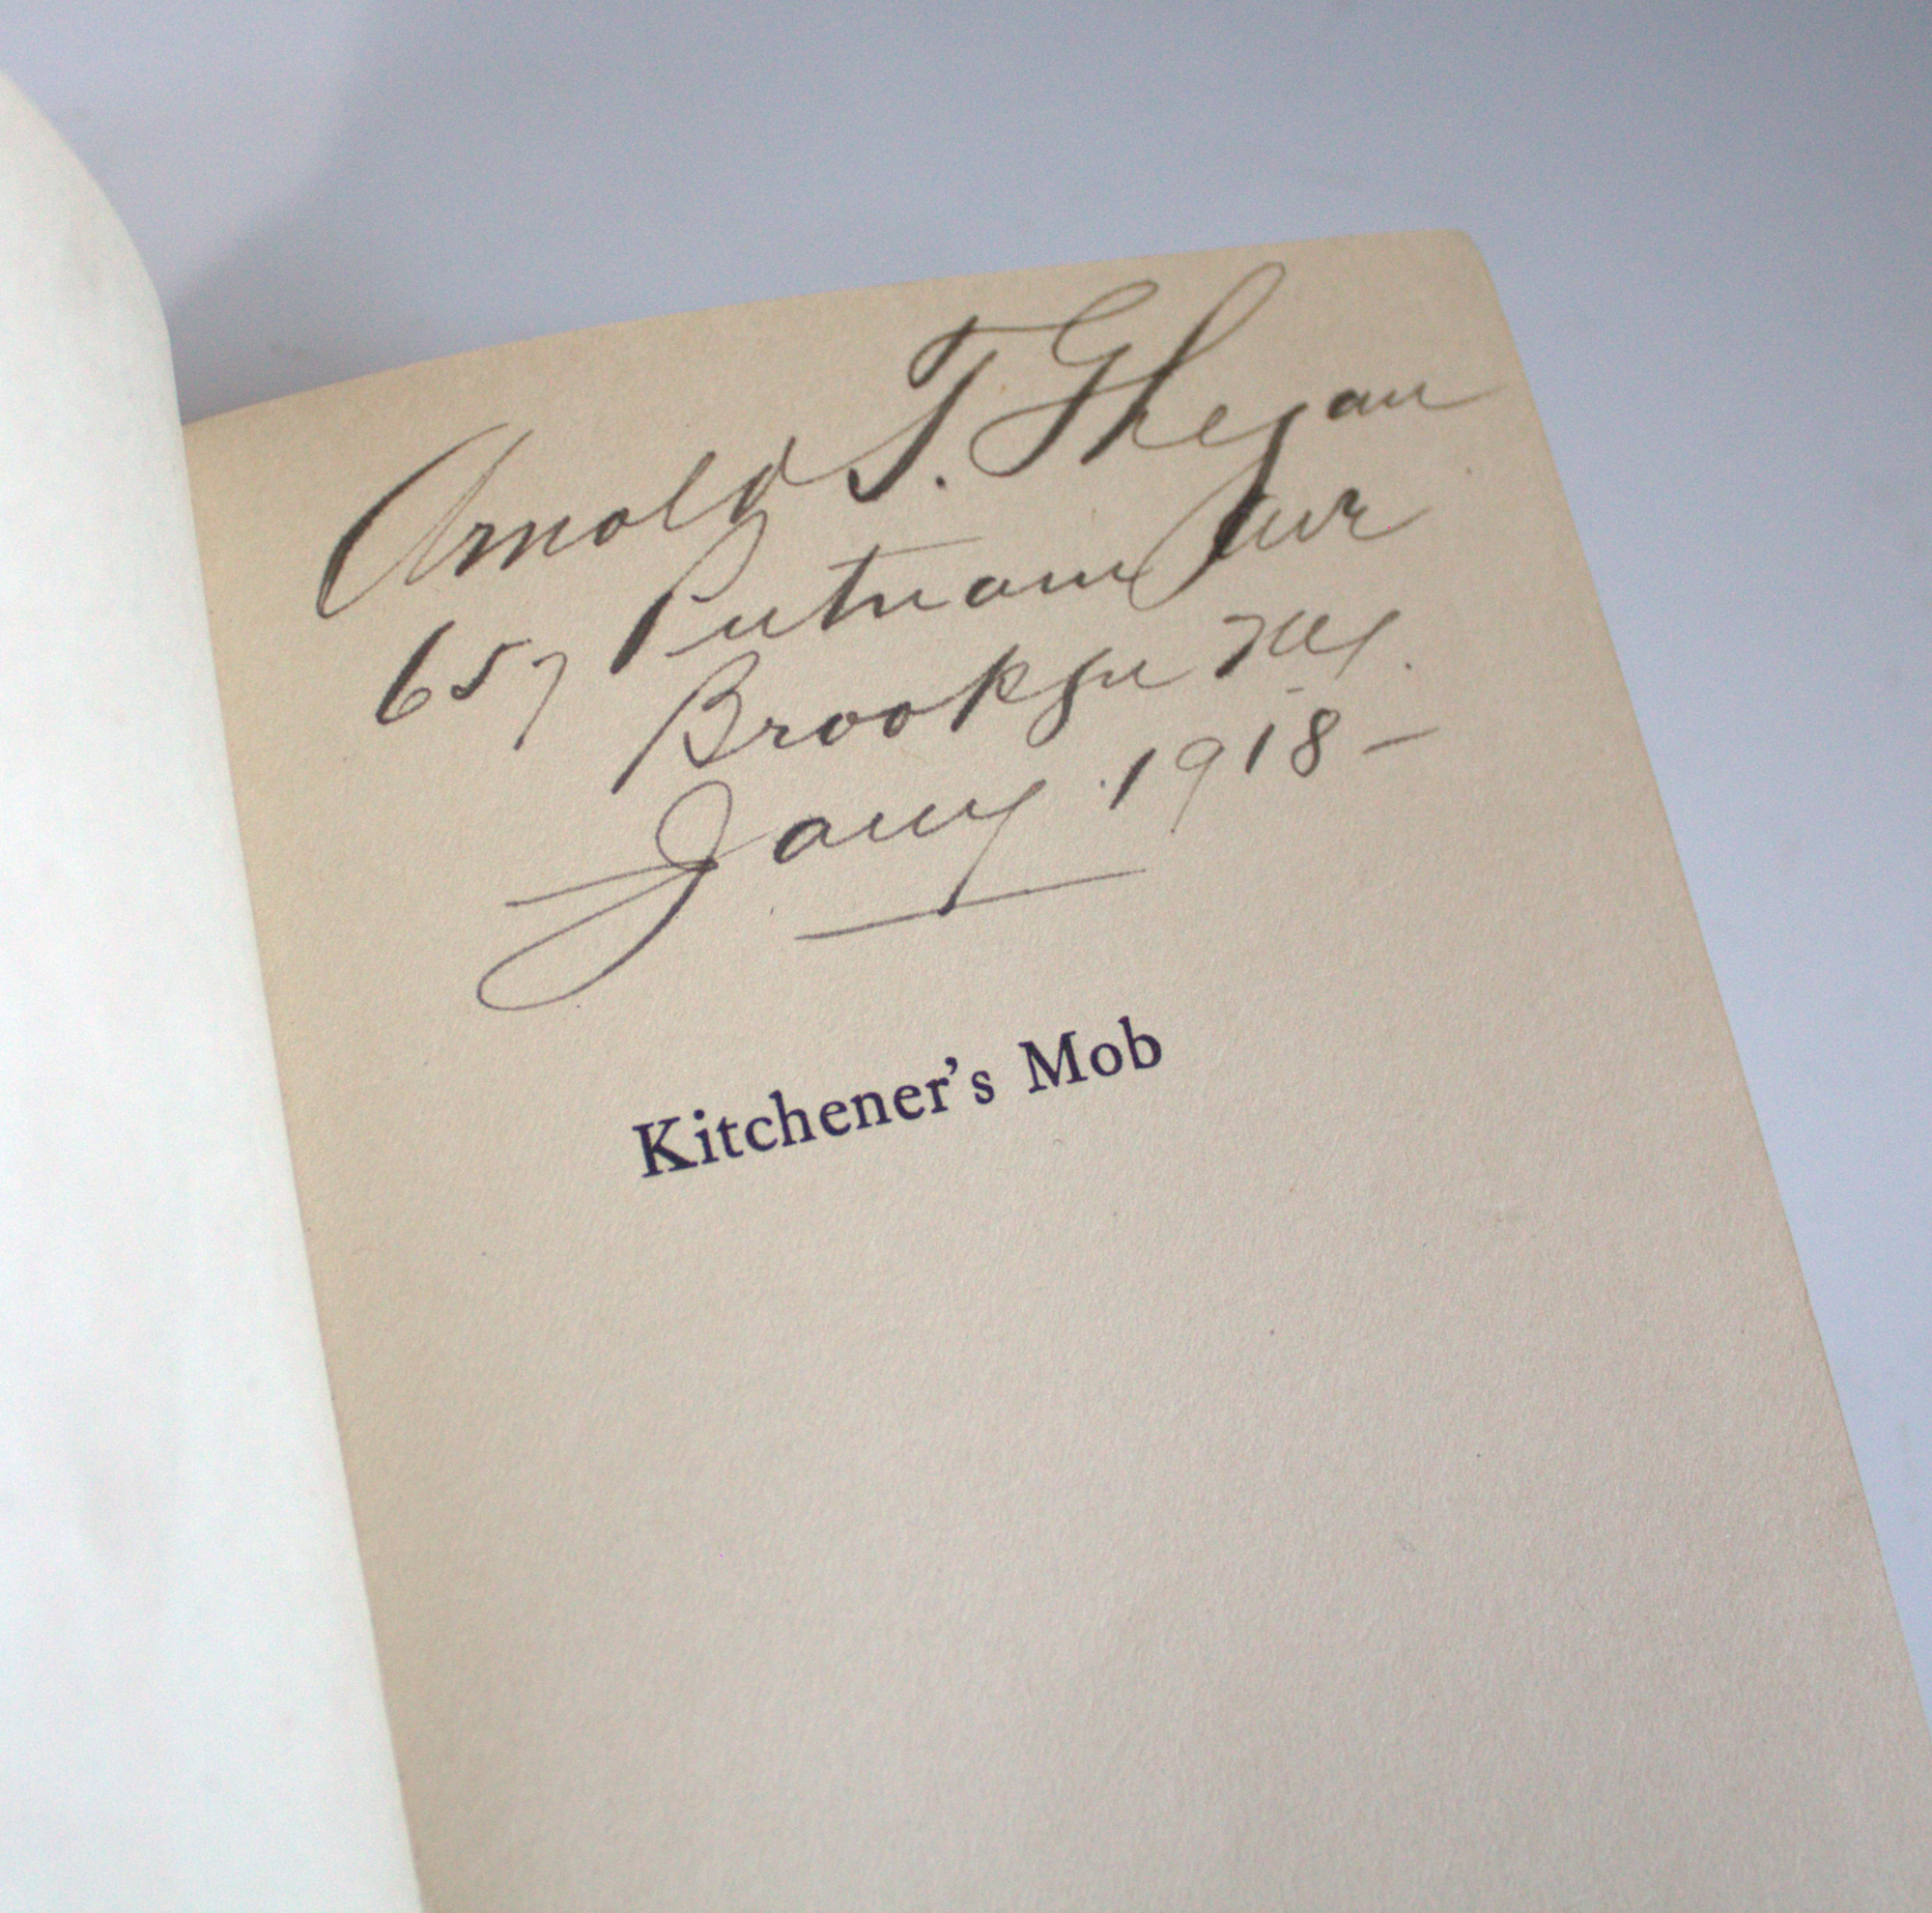 Arnold T. Ghegan
657 Putnam Ave
Brooklyn NY.
Jany 1918 —
Kitchener's Mob